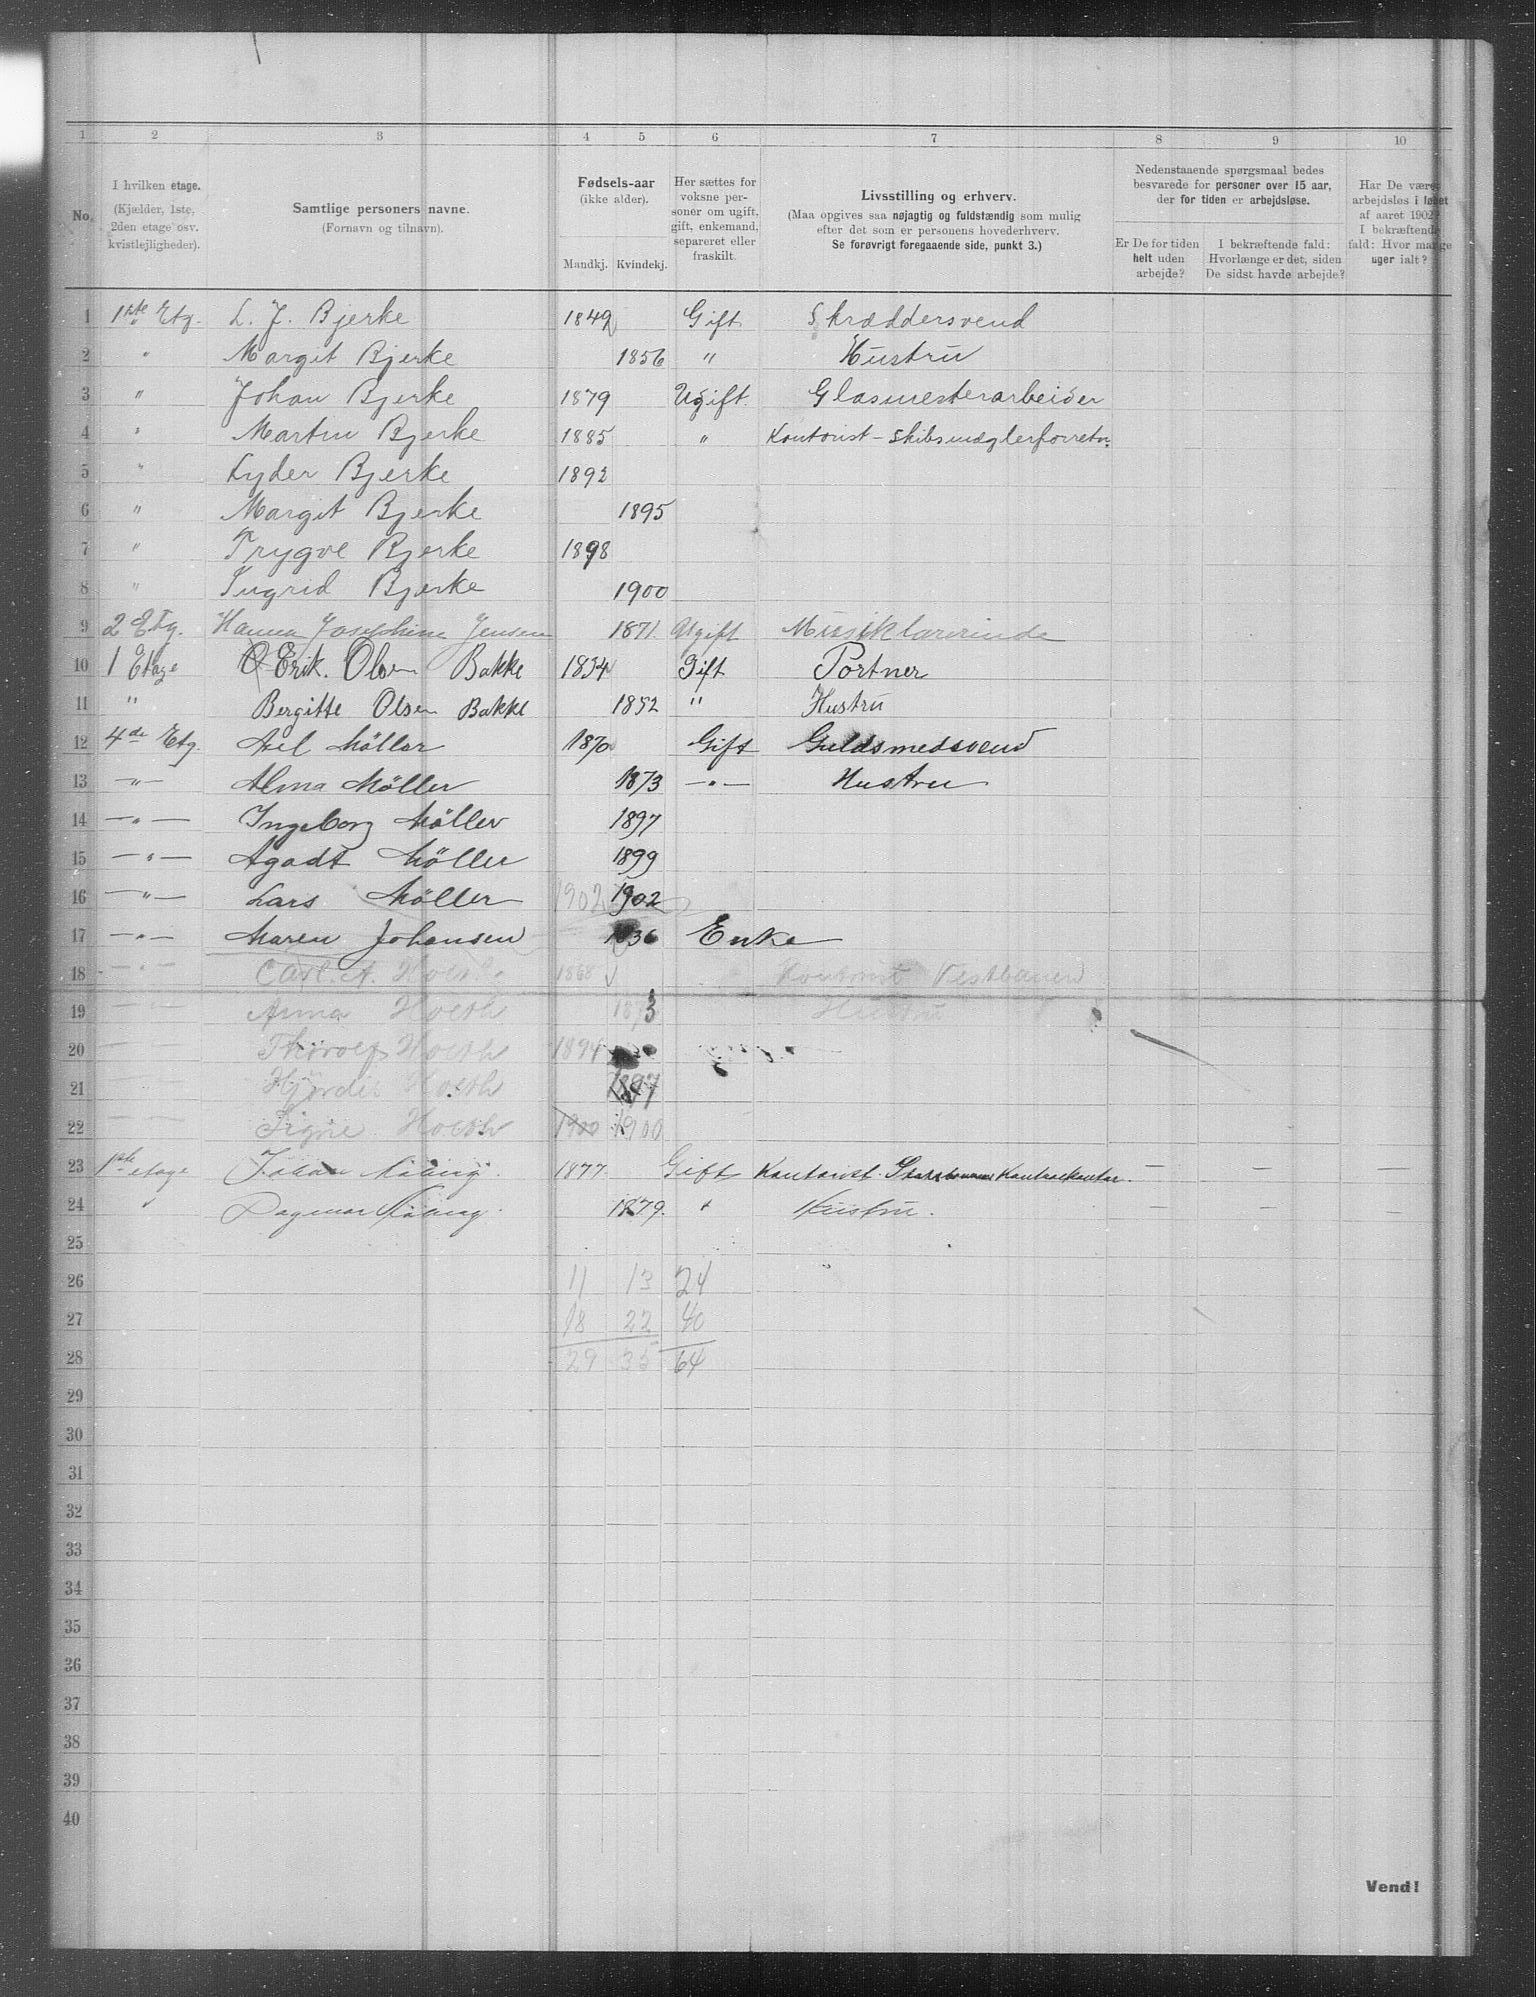 1 2 3 4 5 6 7 8 9 10
No. I hvilken etage. (Kjælder, 1ste, 2den etage osv. kvistlejligheder). Samtlige personers navne. (Fornavn og tilnavn). Fødsels-aar (ikke alder). Mandkj. Kvindekj. Her sættes for voksne personer om ugift, gift, enkemand, separeret eller fraskilt. Livsstilling og erhverv. (Maa opgives saa nøjagtig og fuldstændig som mulig efter det som er personens hovederhverv. Se forøvrigt foregaaende side, punkt 3.) Nedenstaaende spørgsmaal bedes besvarede for personer over 15 aar, der for tiden er arbejdsløse. Er De for tiden helt uden arbejde? I bekræftende fald: Hvorlænge er det, siden De sidst havde arbejde? Har De været arbejdsløs i løbet af aaret 1902? I bekræftende fald: Hvor mange uger ialt?
1 1ste Etg. L. J. Bjerke 1849 Gift Skræddersvend
2 " Margit Bjerke 1856 " Hustru
3 " Johan Bjerke 1879 Ugift. Glasmesterarbeider
4 " Martin Bjerke 1885 " Kontorist - Skibsmæglerforretn.
5 " Lyder Bjerke 1892
6 " Margit Bjerke 1895
7 " Trygve Bjerke 1898
8 " Ingrid Bjerke 1900
9 2 Etg. Hanna Josephine Jensen 1871. Ugift Musiklærerinde
10 1 Etage Erik. Olsen Bakke 1834 Gift Portner
11 " Bergitte Olsen Bakke 1852 " Hustru
12 4de Etg. Axel Møller 1870 Gift Guldsmedsvend
13 -"- Alma Møller 1873 -"- Hustru
14 -"- Ingeborg Møller 1897
15 -"- Agadt Møller 1899
16 -"- Lars Møller 1902 1902
17 -"- Maren Johansen 1836 Enke
18 -"- Carl. A. Hoeth 1868 Kontorist Vestbanen
19 Anna Hoeth 1873 Hustru
20 Thorolf Hoeth 1894
21 Hjördis Hoeth 1897
22 Signe Hoeth 1900 1900
23 1ste etage Johan 1877 Gift Kontorist. Statsbanernes Kontrolkontor. — — —
24 " Dagmar 1879. " Hustru. — — —
25
26 11 13 24
27 18 22 40
28 29 35 64
29
30
31
32
33
34
35
36
37
38
39
40
Vend!